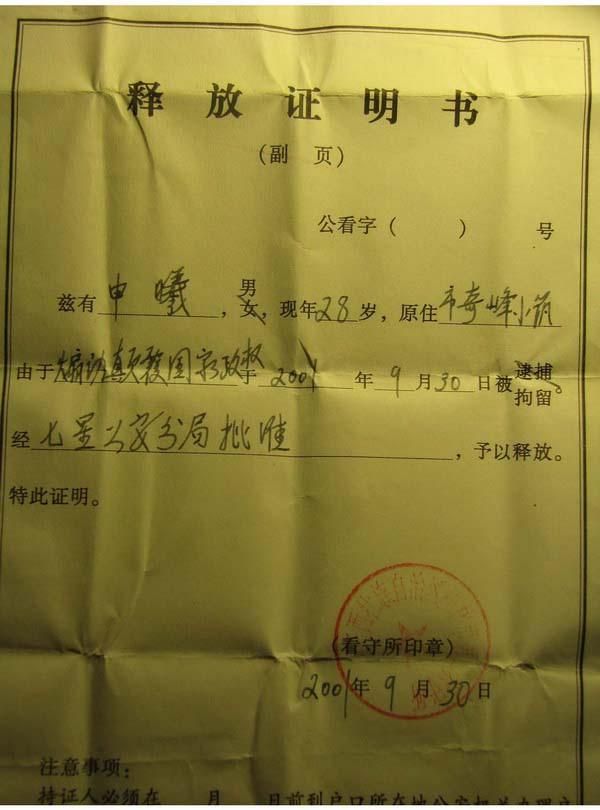 释放证明书
(副 页)
公看字（ ）号
兹有申曦，男
女，现年28岁，原住市奇峰小筑
由于煽动颠覆国家政权于2001年9月30日被逮捕
拘留。
经七星公安分局批准，予以释放。
特此证明。
(看守所印章)
2001年9月30日
注意事项：
持证人必须在 月 日前到户口所在地公安机关办理户